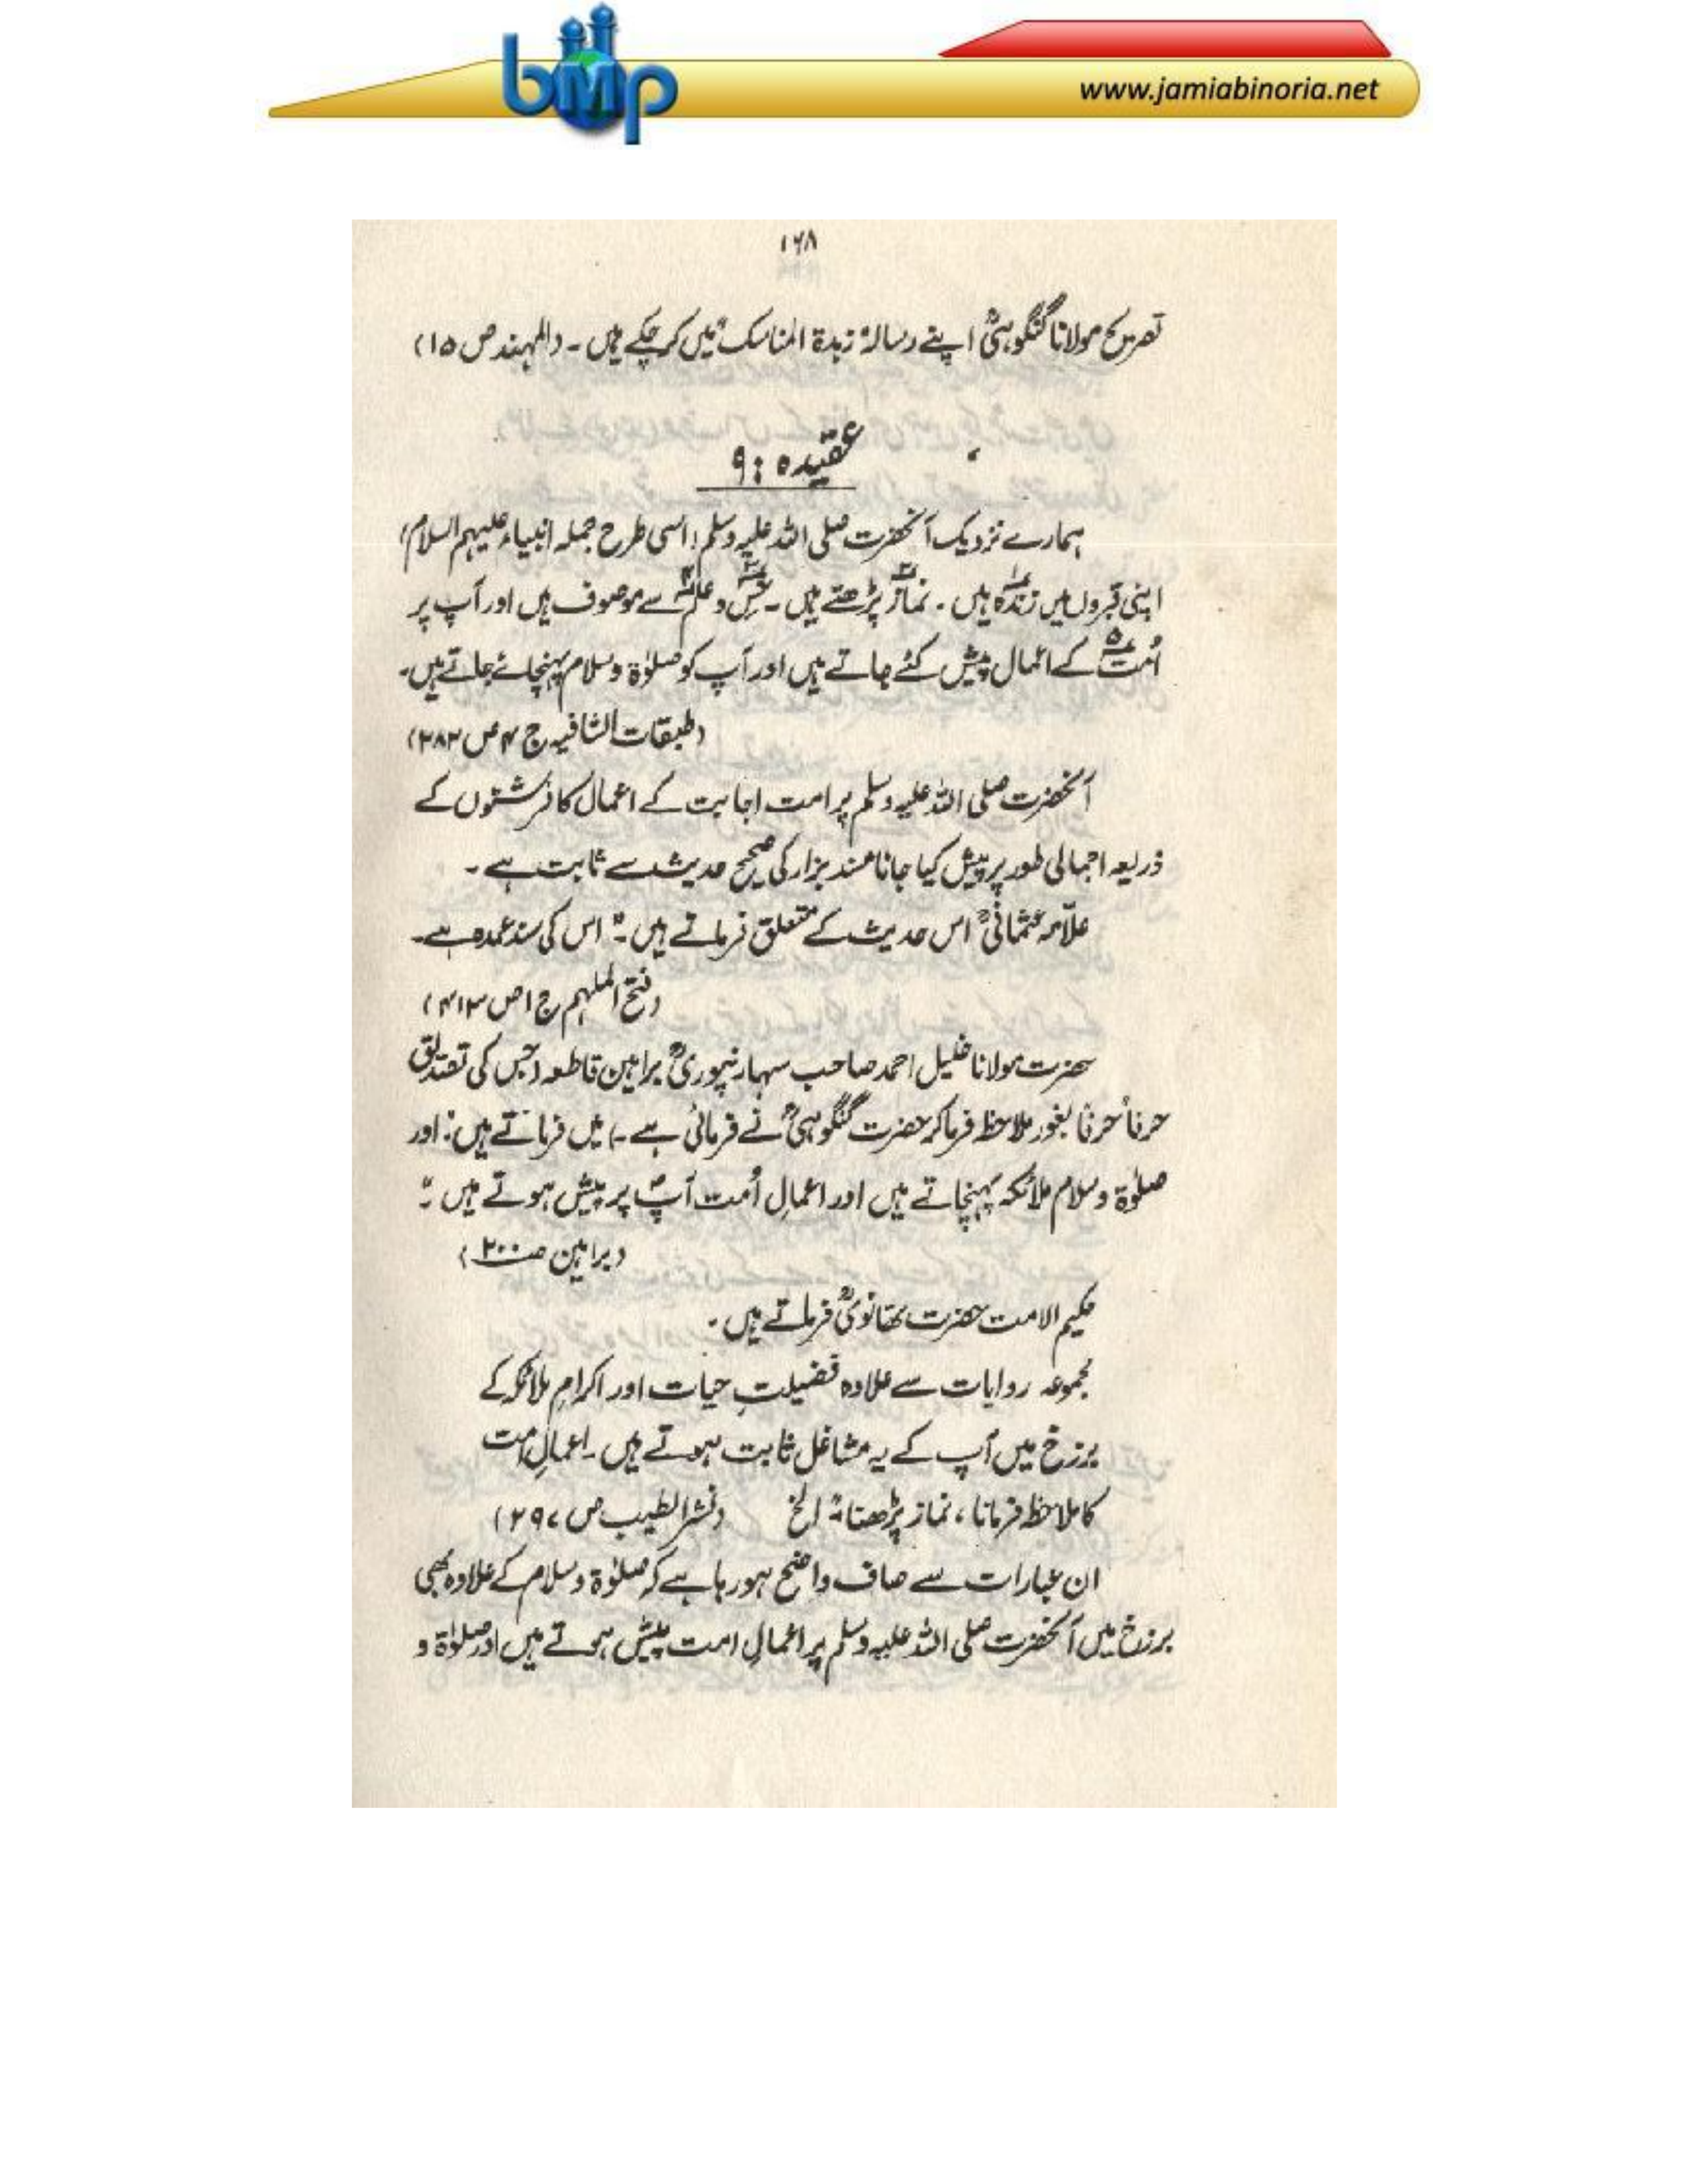 bmp
www.jamiabinoria.net
۱۶۸
تصریح مولانا گنگوہیؒ اپنے رسالہ "زبدۃ المناسک" میں کر چکے ہیں ۔ (المہند ص ۱۵)
عقیدہ : ۹
ہمارے نزدیک آنحضرت صلی اللہ علیہ وسلم (اسی طرح جملہ انبیاء علیہم السلام)
اپنی قبروں میں زندہ۱ ہیں ۔ نماز۲ پڑھتے ہیں ۔ حِس۳ و علم۴ سے موصوف ہیں اور آپ پر
اُمت۵ کے اعمال پیش کئے جاتے ہیں اور آپ کو صلوٰۃ و سلام پہنچائے جاتے ہیں۔
(طبقات الشافیہ ج ۴ ص ۲۸۲)
آنحضرت صلی اللہ علیہ وسلم پر امت اجابت کے اعمال کا فرشتوں کے
ذریعہ اجمالی طور پر پیش کیا جانا مسند بزار کی صحیح حدیث سے ثابت ہے ۔
علّامہ عثمانیؒ اس حدیث کے متعلق فرماتے ہیں :" اس کی سند عمدہ ہے۔
(فتح الملہم ج ۱ ص ۴۱۳)
حضرت مولانا خلیل احمد صاحب سہارنپوریؒ براہین قاطعہ (جس کی تصدیق
حرفاً حرفاً بغور ملاحظہ فرما کر حضرت گنگوہیؒ نے فرمائی ہے ۔) میں فرماتے ہیں : اور
صلوٰۃ و سلام ملائکہ پہنچاتے ہیں اور اعمالِ اُمت آپؐ پر پیش ہوتے ہیں ۔"
(براہین صـ ۲۰۰)
حکیم الامت حضرت تھانویؒ فرماتے ہیں ۔
مجموعہ روایات سے علاوہ فضیلتِ حیات اور اکرامِ ملائکہ کے
برزخ میں آپ کے یہ مشاغل ثابت ہوتے ہیں ۔ اعمالِ امت
کا ملاحظہ فرمانا ، نماز پڑھنا " الخ (نشر الطیب ص ۲۹۷)
ان عبارات سے صاف واضح ہو رہا ہے کہ صلوٰۃ و سلام کے علاوہ بھی
برزخ میں آنحضرت صلی اللہ علیہ وسلم پر اعمالِ امت پیش ہوتے ہیں اور صلوٰۃ و